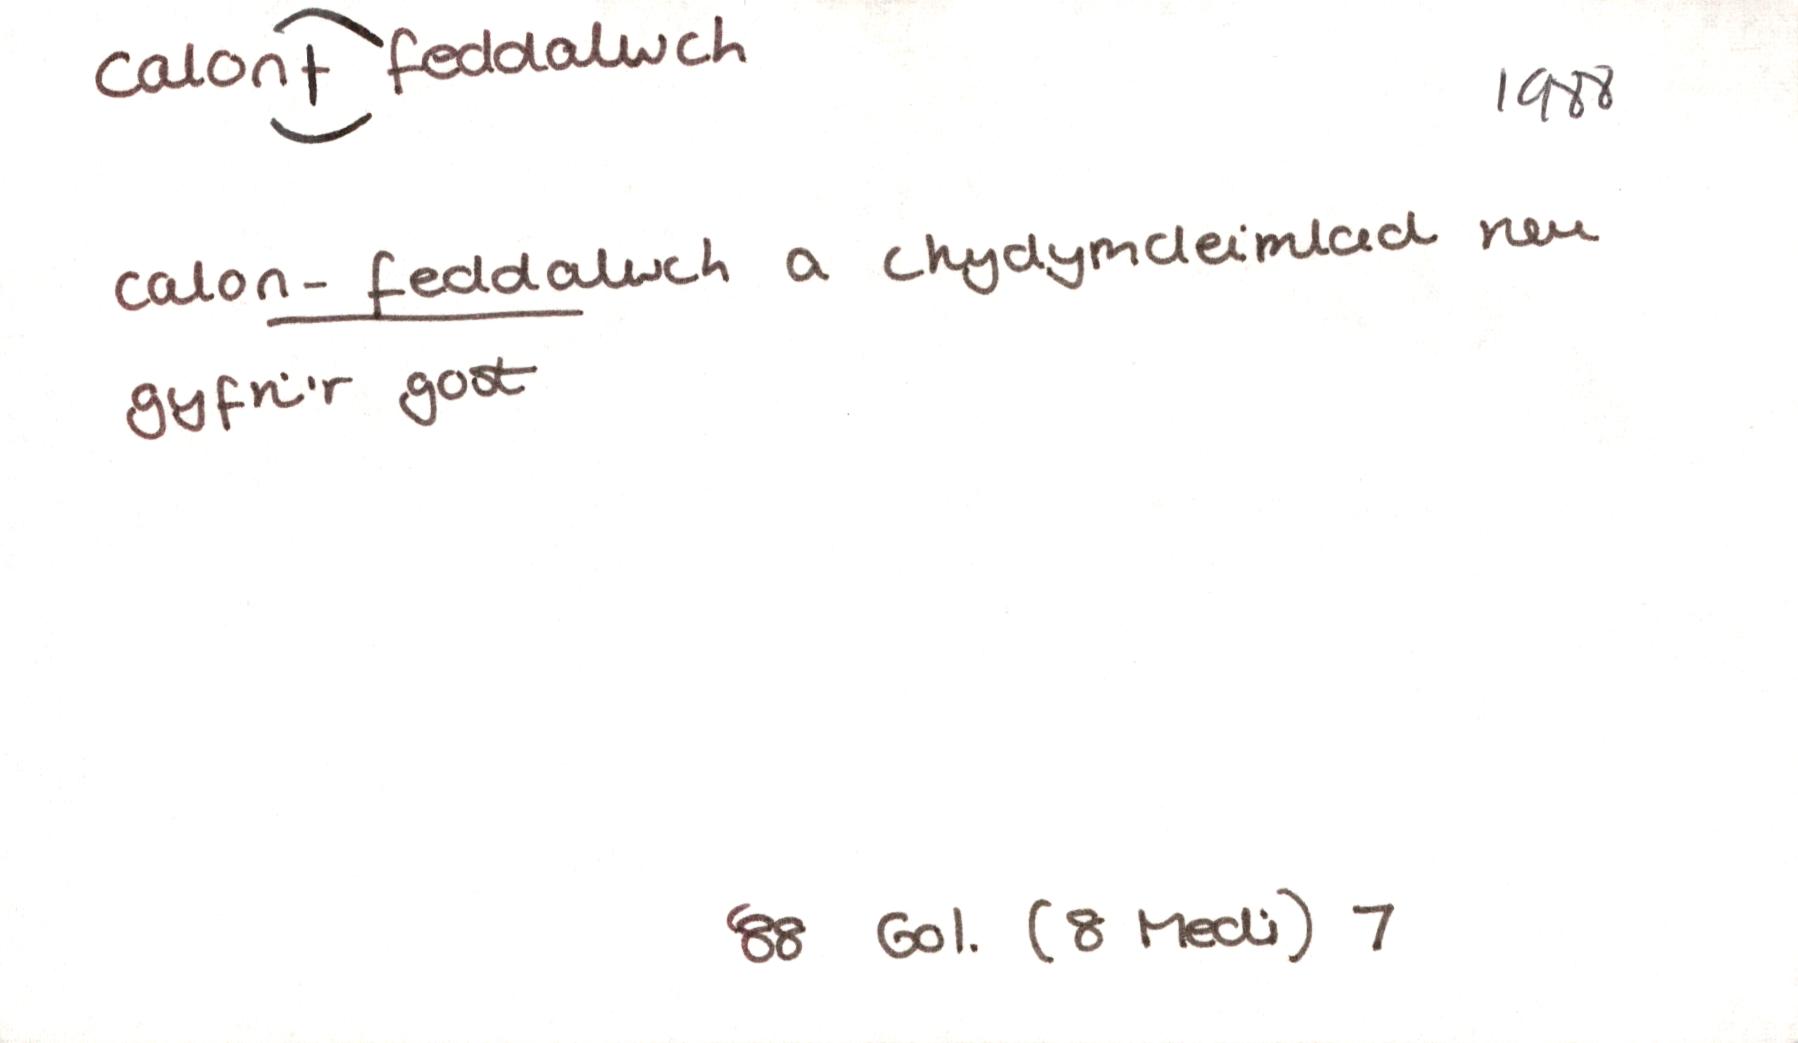 calon+feddalwch
1988
calon-feddalwch a chydymdeimlad neu
gyfri'r gost
'88 Gol. (8 Medi) 7